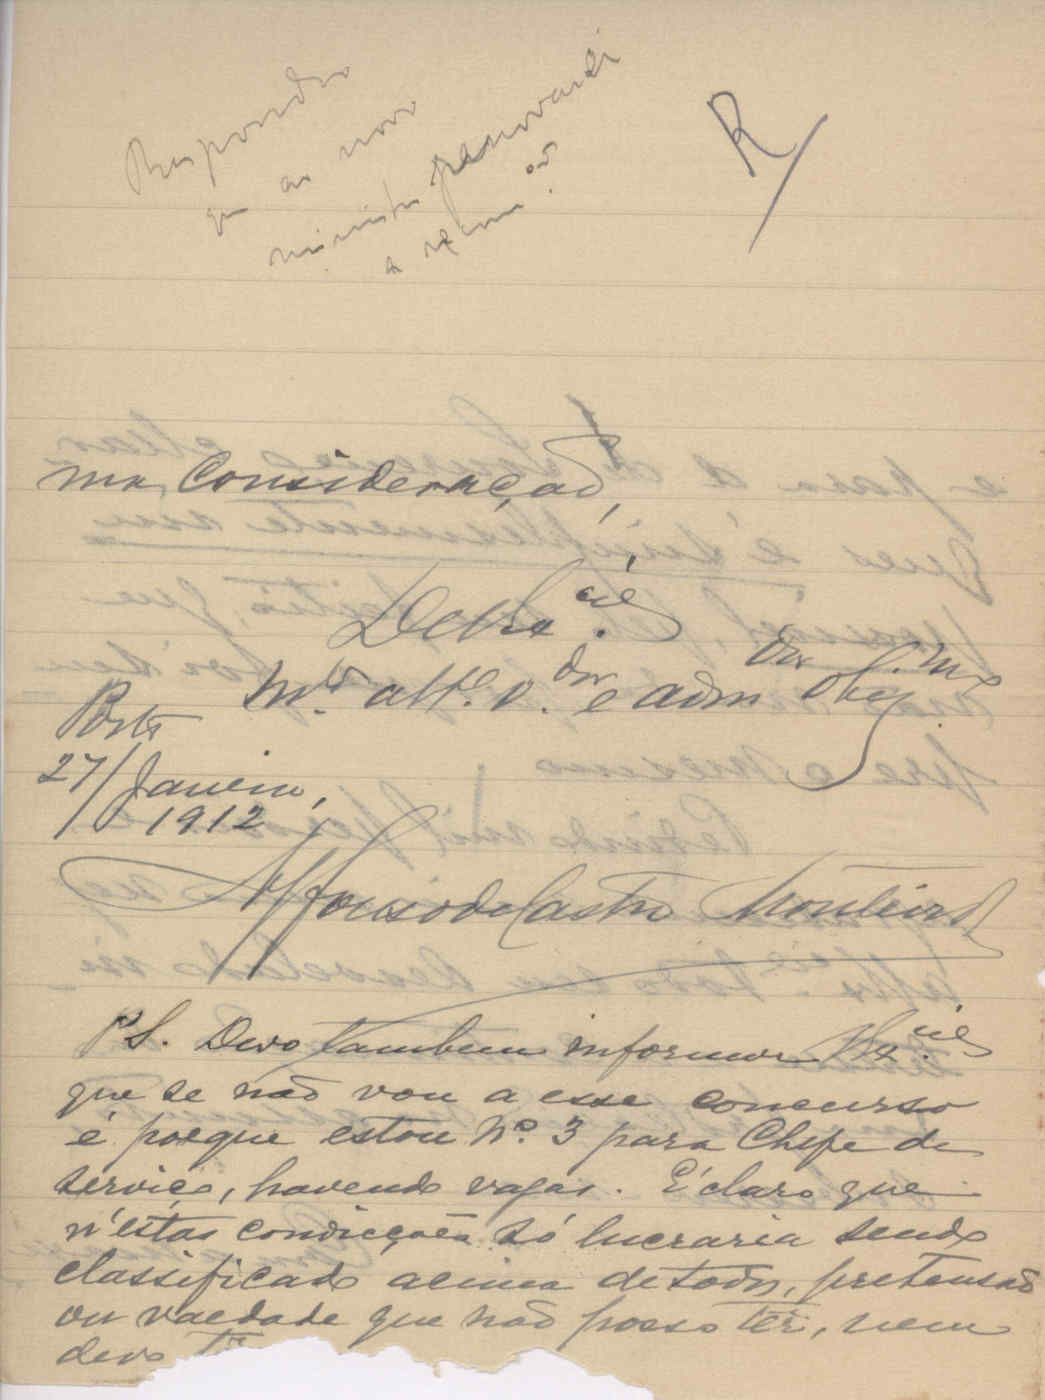 Responder
que ao novo
ministro
a
R/
ma consideração,
De V. Ex.cia
m.to att.o v.dor e adm.dor obg.mo
Porto
27/Janeiro,
1912
Affonso de Castro Monteiro
P.S. Devo tambem informar V. Ex.cia
que se não vou a esse concurso
é porque estou Nº. 3 para Chefe de
serviço, havendo vagas. É claro que
n'estas condicções só lucraria sendo
classificado acima de todos, pretensão
ou vaedade que não posso ter, nem
devo